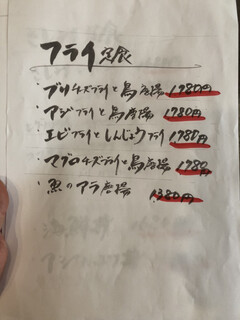 フライ定食
・ブリチーズフライと鳥唐揚 1780円
・アジフライと鳥唐揚 1780円
・エビフライとしんじょうフライ 1780円
・マグロチーズフライと鳥唐揚 1780円
・魚のアラ唐揚 1380円